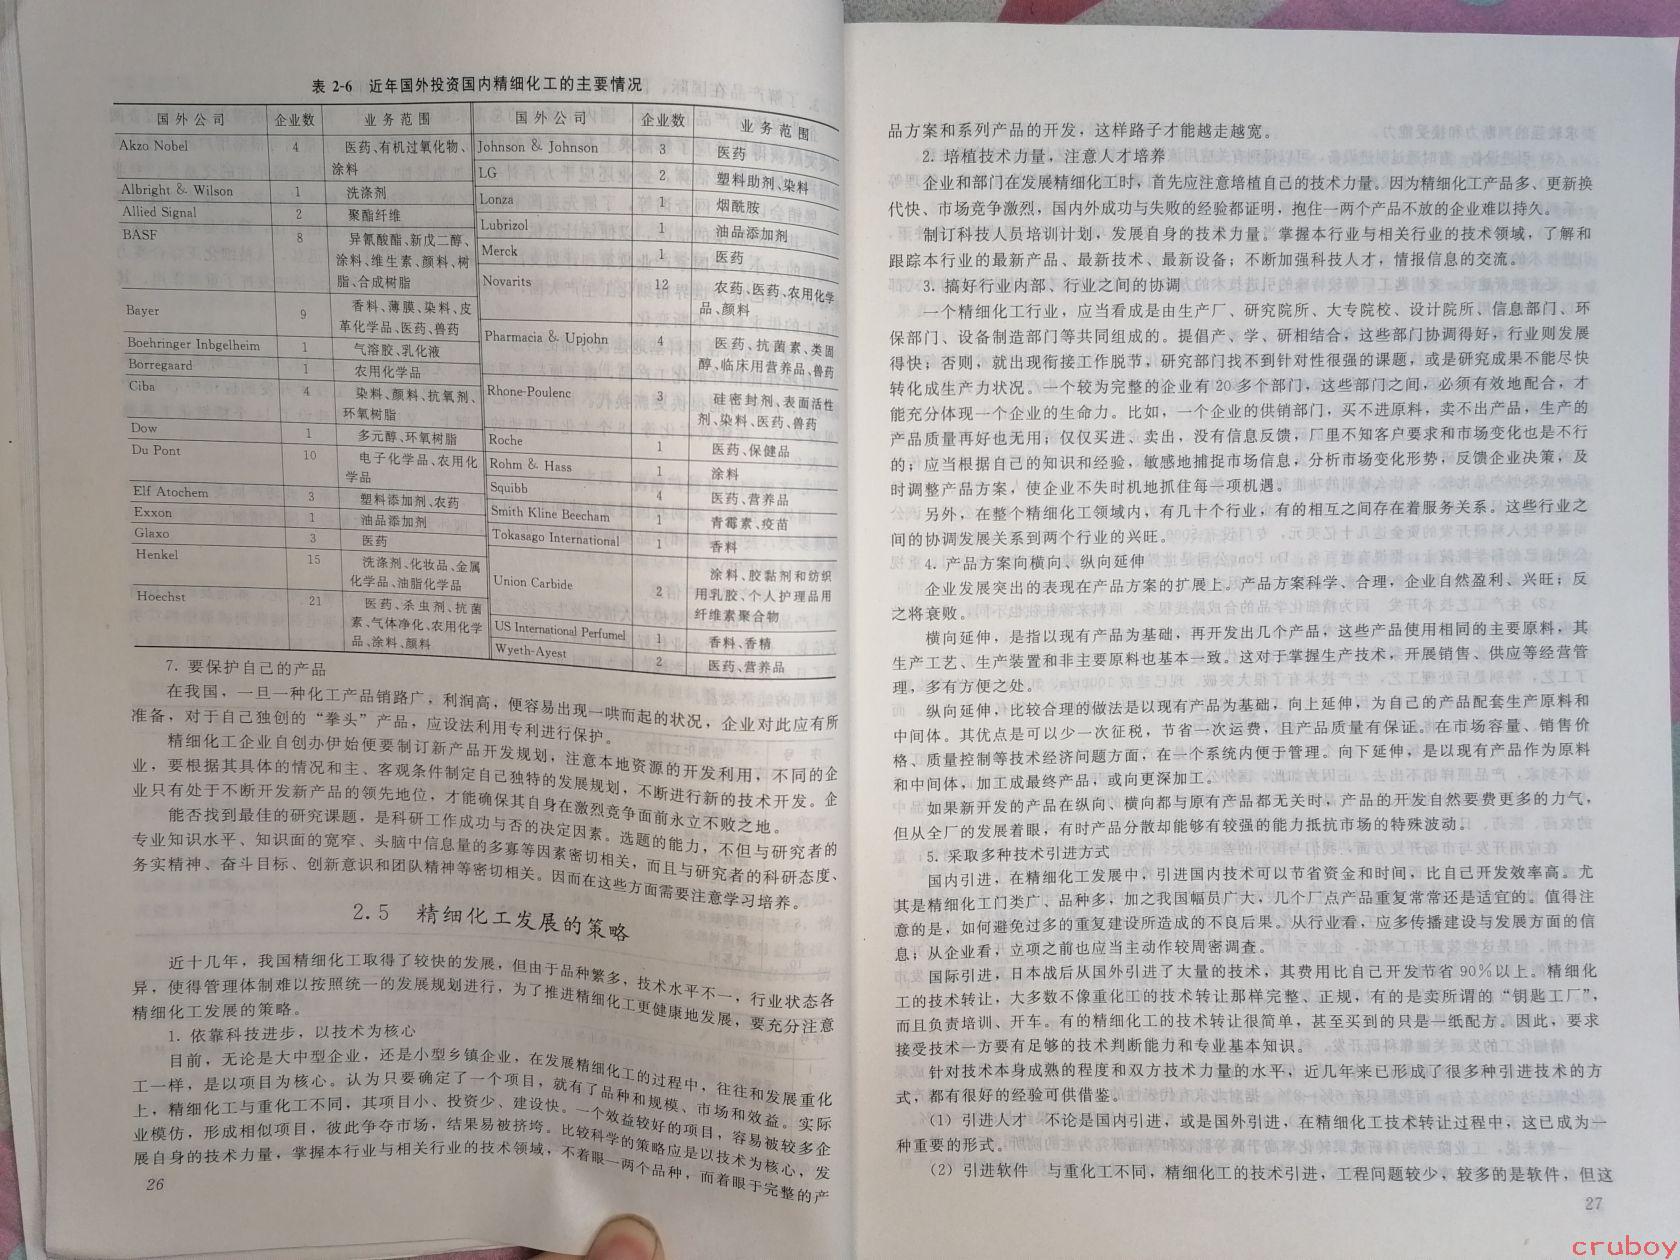 表 2-6　近年国外投资国内精细化工的主要情况
国外公司 企业数 业务范围 国外公司 企业数 业务范围
Akzo Nobel 4 医药、有机过氧化物、
涂料
Albright & Wilson 1 洗涤剂
Allied Signal 2 聚酯纤维
BASF 8 异氰酸酯、新戊二醇、
涂料、维生素、颜料、树
脂、合成树脂
Bayer 9 香料、薄膜、染料、皮
革化学品、医药、兽药
Boehringer Inbgelheim 1 气溶胶、乳化液
Borregaard 1 农用化学品
Ciba 4 染料、颜料、抗氧剂、
环氧树脂
Dow 1 多元醇、环氧树脂
Du Pont 10 电子化学品、农用化
学品
Elf Atochem 3 塑料添加剂、农药
Exxon 1 油品添加剂
Glaxo 3 医药
Henkel 15 洗涤剂、化妆品、金属
化学品、油脂化学品
Hoechst 21 医药、杀虫剂、抗菌
素、气体净化、农用化学
品、涂料、颜料
Johnson & Johnson 3 医药
LG 2 塑料助剂、染料
Lonza 1 烟酰胺
Lubrizol 1 油品添加剂
Merck 1 医药
Novarits 12 农药、医药、农用化学
品、颜料
Pharmacia & Upjohn 4 医药、抗菌素、类固
醇、临床用营养品、兽药
Rhone-Poulenc 3 硅密封剂、表面活性
剂、染料、医药、兽药
Roche 1 医药、保健品
Rohm & Hass 1 涂料
Squibb 4 医药、营养品
Smith Kline Beecham 1 青霉素、疫苗
Tokasago International 1 香料
Union Carbide 2 涂料、胶黏剂和纺织
用乳胶、个人护理品用
纤维素聚合物
US International Perfumel 1 香料、香精
Wyeth-Ayest 2 医药、营养品
7. 要保护自己的产品
在我国，一旦一种化工产品销路广，利润高，便容易出现一哄而起的状况，企业对此应有所
准备，对于自己独创的“拳头”产品，应设法利用专利进行保护。
精细化工企业自创办伊始便要制订新产品开发规划，注意本地资源的开发利用，不同的企
业，要根据其具体的情况和主、客观条件制定自己独特的发展规划，不断进行新的技术开发。企
业只有处于不断开发新产品的领先地位，才能确保其自身在激烈竞争面前永立不败之地。
能否找到最佳的研究课题，是科研工作成功与否的决定因素。选题的能力，不但与研究者的
专业知识水平、知识面的宽窄、头脑中信息量的多寡等因素密切相关，而且与研究者的科研态度、
务实精神、奋斗目标、创新意识和团队精神等密切相关。因而在这些方面需要注意学习培养。
2.5　精细化工发展的策略
近十几年，我国精细化工取得了较快的发展，但由于品种繁多，技术水平不一，行业状态各
异，使得管理体制难以按照统一的发展规划进行，为了推进精细化工更健康地发展，要充分注意
精细化工发展的策略。
1. 依靠科技进步，以技术为核心
目前，无论是大中型企业，还是小型乡镇企业，在发展精细化工的过程中，往往和发展重化
工一样，是以项目为核心。认为只要确定了一个项目，就有了品种和规模、市场和效益。实际
上，精细化工与重化工不同，其项目小、投资少、建设快。一个效益较好的项目，容易被较多企
业模仿，形成相似项目，彼此争夺市场，结果易被挤垮。比较科学的策略应是以技术为核心，发
展自身的技术力量，掌握本行业与相关行业的技术领域，不着眼一两个品种，而着眼于完整的产
26
品方案和系列产品的开发，这样路子才能越走越宽。
2. 培植技术力量，注意人才培养
企业和部门在发展精细化工时，首先应注意培植自己的技术力量。因为精细化工产品多、更新换
代快、市场竞争激烈，国内外成功与失败的经验都证明，抱住一两个产品不放的企业难以持久。
制订科技人员培训计划，发展自身的技术力量。掌握本行业与相关行业的技术领域，了解和
跟踪本行业的最新产品、最新技术、最新设备；不断加强科技人才，情报信息的交流。
3. 搞好行业内部、行业之间的协调
一个精细化工行业，应当看成是由生产厂、研究院所、大专院校、设计院所、信息部门、环
保部门、设备制造部门等共同组成的。提倡产、学、研相结合，这些部门协调得好，行业则发展
得快；否则，就出现衔接工作脱节，研究部门找不到针对性很强的课题，或是研究成果不能尽快
转化成生产力状况。一个较为完整的企业有 20 多个部门，这些部门之间，必须有效地配合，才
能充分体现一个企业的生命力。比如，一个企业的供销部门，买不进原料，卖不出产品，生产的
产品质量再好也无用；仅仅买进、卖出，没有信息反馈，厂里不知客户要求和市场变化也是不行
的；应当根据自己的知识和经验，敏感地捕捉市场信息，分析市场变化形势，反馈企业决策，及
时调整产品方案，使企业不失时机地抓住每一项机遇。
另外，在整个精细化工领域内，有几十个行业，有的相互之间存在着服务关系。这些行业之
间的协调发展关系到两个行业的兴旺。
4. 产品方案向横向、纵向延伸
企业发展突出的表现在产品方案的扩展上。产品方案科学、合理，企业自然盈利、兴旺；反
之将衰败。
横向延伸，是指以现有产品为基础，再开发出几个产品，这些产品使用相同的主要原料，其
生产工艺、生产装置和非主要原料也基本一致。这对于掌握生产技术，开展销售、供应等经营管
理，多有方便之处。
纵向延伸，比较合理的做法是以现有产品为基础，向上延伸，为自己的产品配套生产原料和
中间体。其优点是可以少一次征税，节省一次运费，且产品质量有保证。在市场容量、销售价
格、质量控制等技术经济问题方面，在一个系统内便于管理。向下延伸，是以现有产品作为原料
和中间体，加工成最终产品，或向更深加工。
如果新开发的产品在纵向、横向都与原有产品都无关时，产品的开发自然要费更多的力气，
但从全厂的发展着眼，有时产品分散却能够有较强的能力抵抗市场的特殊波动。
5. 采取多种技术引进方式
国内引进，在精细化工发展中，引进国内技术可以节省资金和时间，比自己开发效率高。尤
其是精细化工门类广、品种多，加之我国幅员广大，几个厂点产品重复常常还是适宜的。值得注
意的是，如何避免过多的重复建设所造成的不良后果。从行业看，应多传播建设与发展方面的信
息；从企业看，立项之前也应当主动作较周密调查。
国际引进，日本战后从国外引进了大量的技术，其费用比自己开发节省 90％以上。精细化
工的技术转让，大多数不像重化工的技术转让那样完整、正规，有的是卖所谓的“钥匙工厂”，
而且负责培训、开车。有的精细化工的技术转让很简单，甚至买到的只是一纸配方。因此，要求
接受技术一方要有足够的技术判断能力和专业基本知识。
针对技术本身成熟的程度和双方技术力量的水平，近几年来已形成了很多种引进技术的方
式，都有很好的经验可供借鉴。
（1）引进人才　不论是国内引进，或是国外引进，在精细化工技术转让过程中，这已成为一
种重要的形式。
（2）引进软件　与重化工不同，精细化工的技术引进，工程问题较少，较多的是软件，但这
27
cruboy